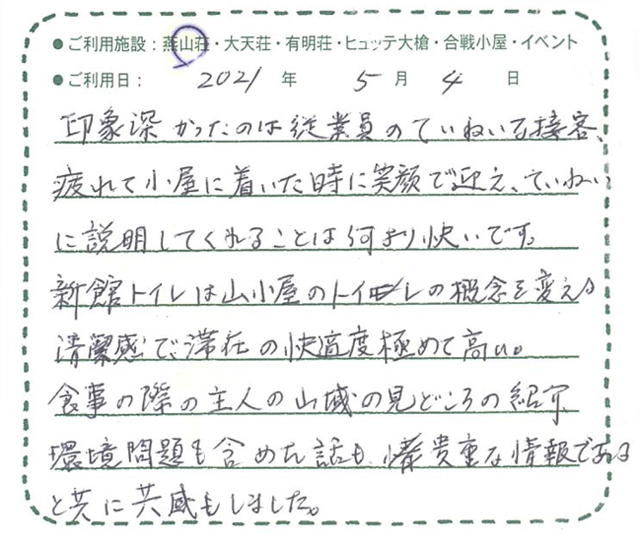 ●ご利用施設：燕山荘・大天荘・有明荘・ヒュッテ大槍・合戦小屋・イベント
●ご利用日： 2021 年 5 月 4 日
印象深かったのは従業員のていねいな接客、
疲れて小屋に着いた時に笑顔で迎え、ていねい
に説明してくれることは何より快いです。
新館トイレは山小屋のトイレの概念を変える
清潔感で、滞在の快適度極めて高い。
食事の際の主人の山域の見どころの紹介、
環境問題も含めた話も、貴重な情報である
と共に共感もしました。